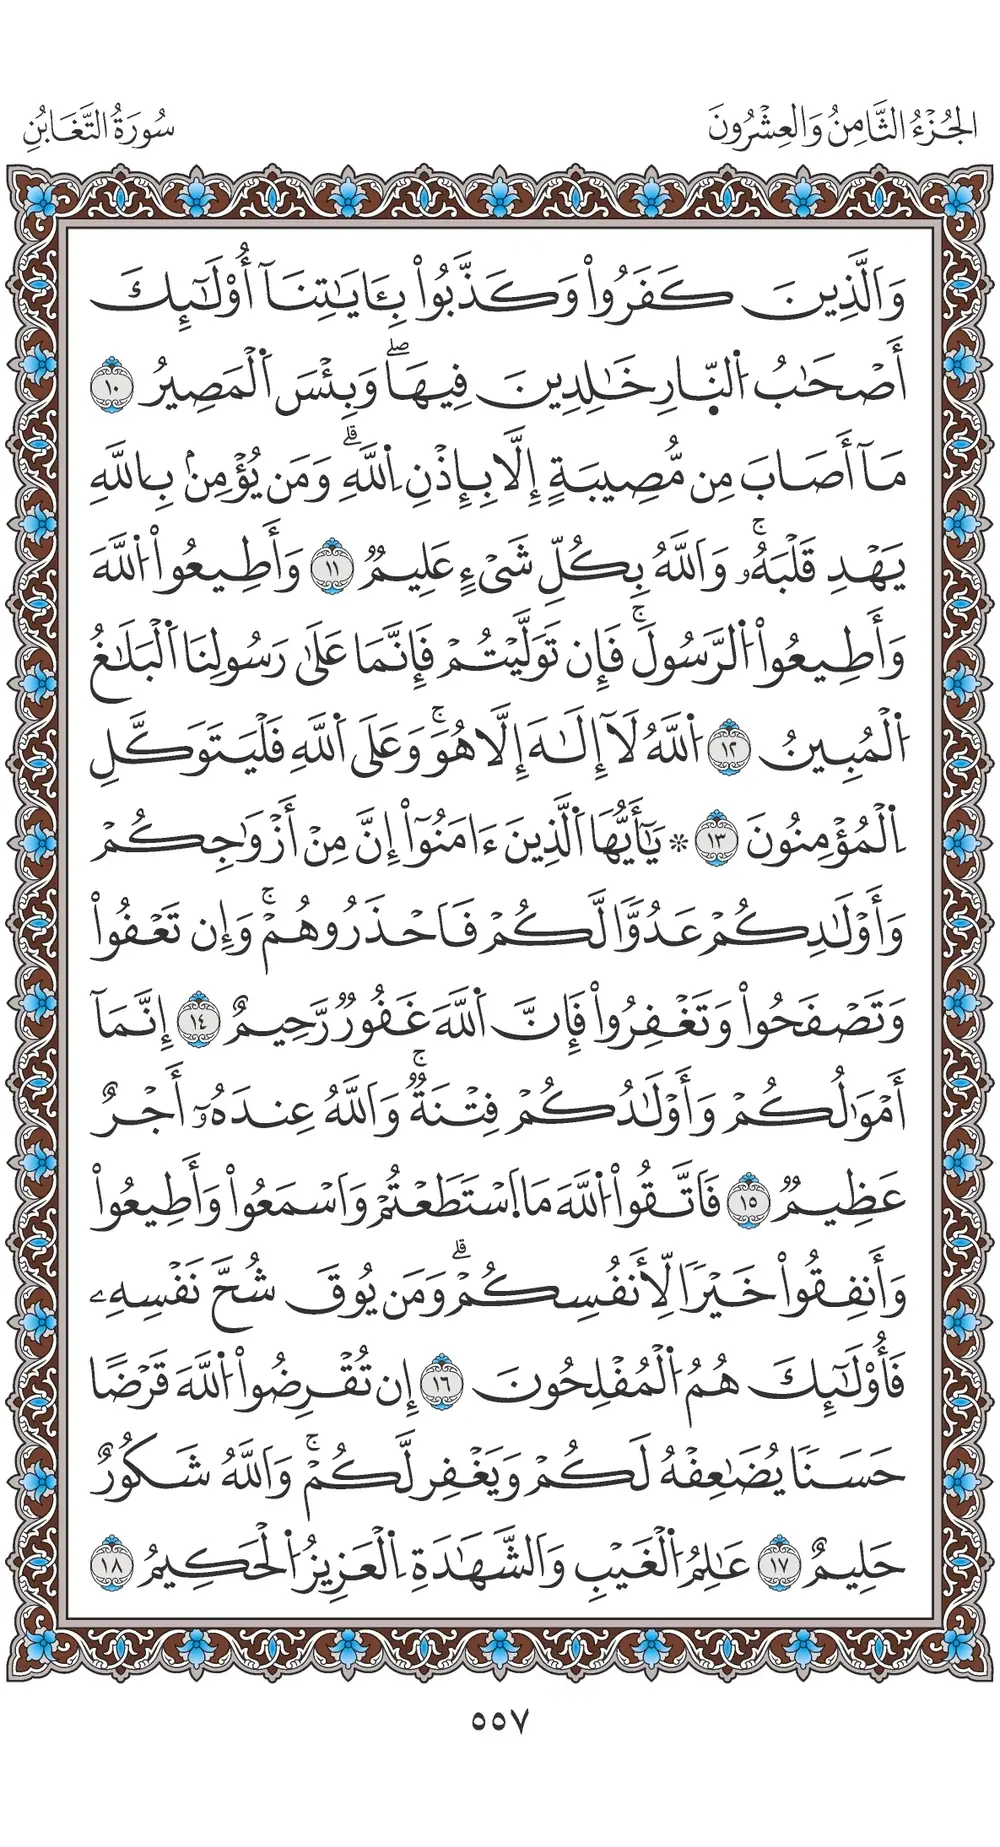 الجُزْءُ الثَّامِنُ وَالعِشْرُونَ
سُورَةُ التَّغَابُنِ
وَٱلَّذِينَ كَفَرُوا۟ وَكَذَّبُوا۟ بِـَٔايَـٰتِنَآ أُو۟لَـٰٓئِكَ
أَصْحَـٰبُ ٱلنَّارِ خَـٰلِدِينَ فِيهَا ۖ وَبِئْسَ ٱلْمَصِيرُ ١٠
مَآ أَصَابَ مِن مُّصِيبَةٍ إِلَّا بِإِذْنِ ٱللَّهِ ۗ وَمَن يُؤْمِنۢ بِٱللَّهِ
يَهْدِ قَلْبَهُۥ ۚ وَٱللَّهُ بِكُلِّ شَىْءٍ عَلِيمٌ ١١ وَأَطِيعُوا۟ ٱللَّهَ
وَأَطِيعُوا۟ ٱلرَّسُولَ ۚ فَإِن تَوَلَّيْتُمْ فَإِنَّمَا عَلَىٰ رَسُولِنَا ٱلْبَلَـٰغُ
ٱلْمُبِينُ ١٢ ٱللَّهُ لَآ إِلَـٰهَ إِلَّا هُوَ ۚ وَعَلَى ٱللَّهِ فَلْيَتَوَكَّلِ
ٱلْمُؤْمِنُونَ ١٣ ۞ يَـٰٓأَيُّهَا ٱلَّذِينَ ءَامَنُوٓا۟ إِنَّ مِنْ أَزْوَٰجِكُمْ
وَأَوْلَـٰدِكُمْ عَدُوًّا لَّكُمْ فَٱحْذَرُوهُمْ ۚ وَإِن تَعْفُوا۟
وَتَصْفَحُوا۟ وَتَغْفِرُوا۟ فَإِنَّ ٱللَّهَ غَفُورٌ رَّحِيمٌ ١٤ إِنَّمَآ
أَمْوَٰلُكُمْ وَأَوْلَـٰدُكُمْ فِتْنَةٌ ۚ وَٱللَّهُ عِندَهُۥٓ أَجْرٌ
عَظِيمٌ ١٥ فَٱتَّقُوا۟ ٱللَّهَ مَا ٱسْتَطَعْتُمْ وَٱسْمَعُوا۟ وَأَطِيعُوا۟
وَأَنفِقُوا۟ خَيْرًا لِّأَنفُسِكُمْ ۗ وَمَن يُوقَ شُحَّ نَفْسِهِۦ
فَأُو۟لَـٰٓئِكَ هُمُ ٱلْمُفْلِحُونَ ١٦ إِن تُقْرِضُوا۟ ٱللَّهَ قَرْضًا
حَسَنًا يُضَـٰعِفْهُ لَكُمْ وَيَغْفِرْ لَكُمْ ۚ وَٱللَّهُ شَكُورٌ
حَلِيمٌ ١٧ عَـٰلِمُ ٱلْغَيْبِ وَٱلشَّهَـٰدَةِ ٱلْعَزِيزُ ٱلْحَكِيمُ ١٨
٥٥٧